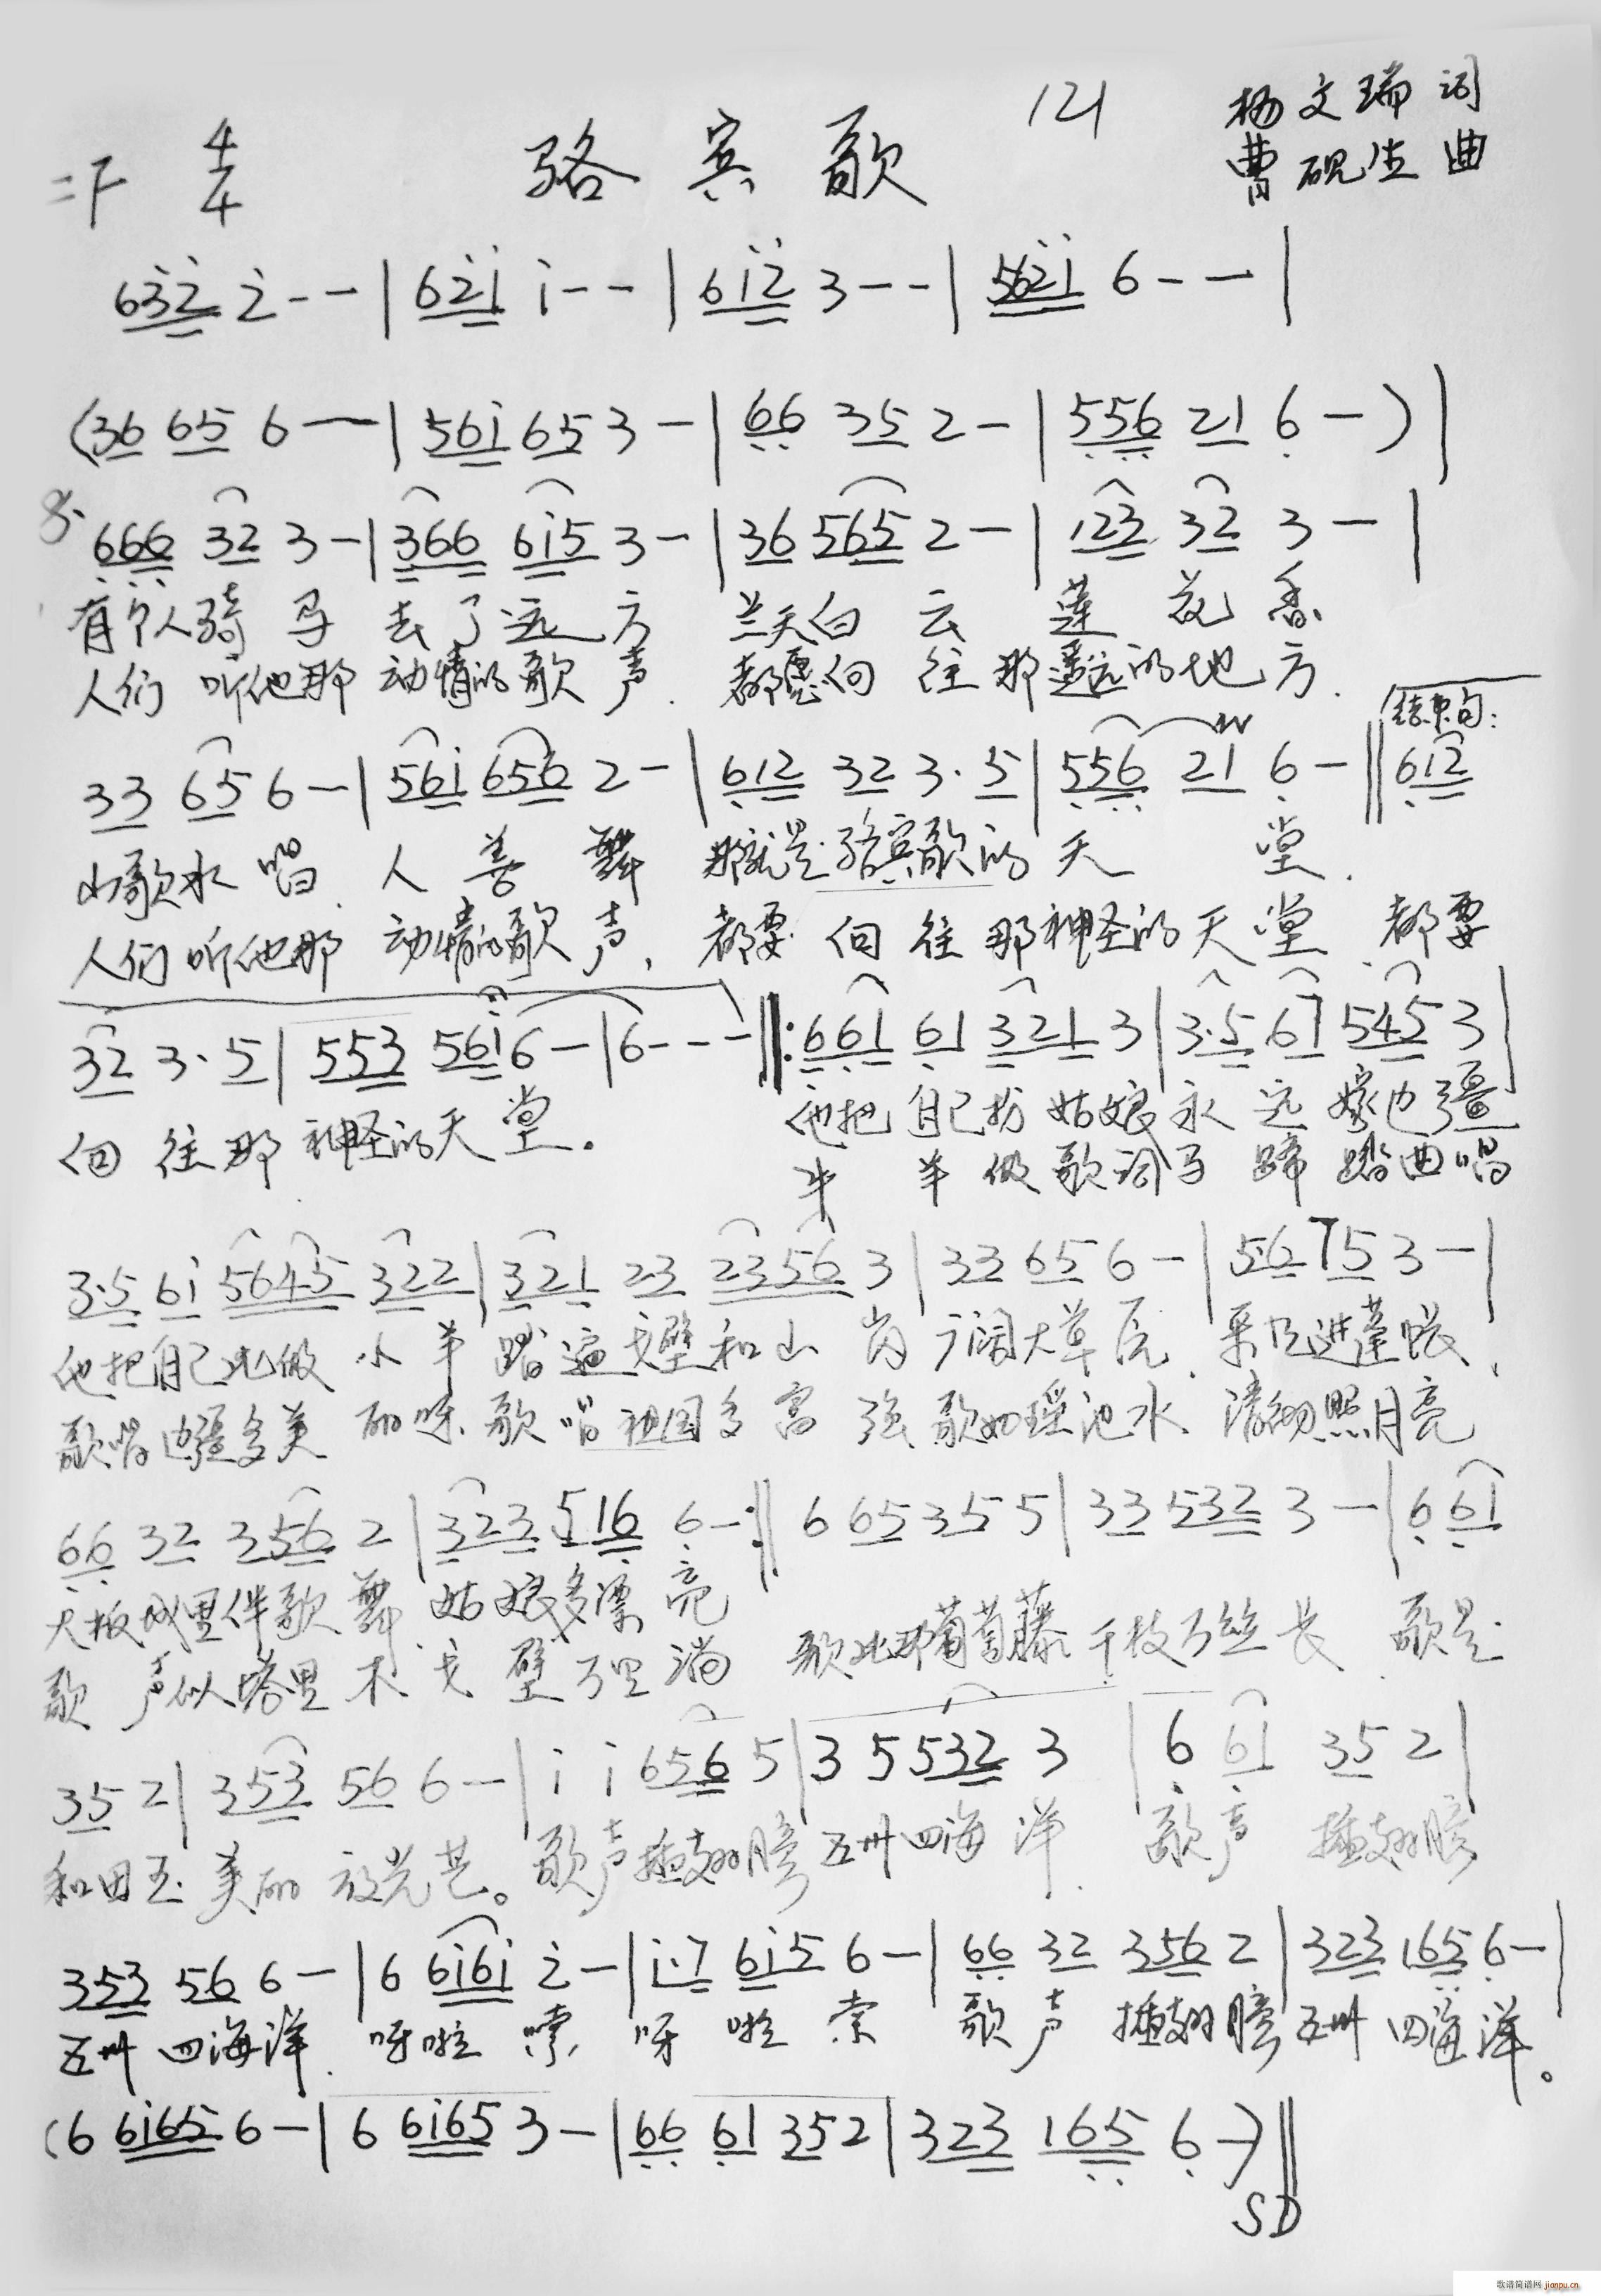 121
杨文瑞 词
=F 4/4 骆宾歌
曹砚生 曲
632 2--|621 1--|612 3--|5621 6--|
(36 65 6—|561 65 3-|66 35 2-|556 21 6-)|
666 32 3-|366 615 3-|36 565 2-|123 32 3-|
有个人骑马 去了远方 兰天白云 莲花香
人们听他那 动情的歌声. 都愿向往那遥远的地方.
结束句:
33 65 6-|561 656 2-|612 32 3·5|556 21 6-‖612
山歌水唱 人善舞 那就是骆宾歌的天堂.
人们听他那 动情的歌声, 都要向往那神圣的天堂 都要
32 3·5|553 561 6-|6---‖:661 61 321 3|3·5 67 545 3|
向往那神圣的天堂。 他把自己扮姑娘永远嫁边疆
牛羊做歌词马蹄踏曲唱
3·5 61 5645 322|321 23 2356 3|33 65 6-|56 75 3-|
他把自己比做小羊踏遍戈壁和山岗 广阔大草原 采风进蓬帐,
歌唱边疆多美丽呀 歌唱祖国多富强 歌如瑶池水 清彻照月亮
66 32 356 2|323 516 6-:‖6 65 35 5|33 532 3-|6 61
大坂城里伴歌舞 姑娘多漂亮
歌声似塔里木戈壁万里淌 歌比那葡萄藤 千枝万丝长 歌是
35 2|353 56 6-|1 1 656 5|3 5 532 3|6 61 35 2|
和田玉 美丽放光芒。歌声插翅膀五州四海洋. 歌声插翅膀
353 56 6-|6 6161 2-|1·7 615 6-|66 32 356 2|323 165 6-|
五州四海洋. 呀啦嗦, 呀啦索 歌声插翅膀五州四海洋。
(6 6165 6-|6 6165 3-|66 61 35 2|323 165 6-)‖
SD
歌谱简谱网 jianpu.cn